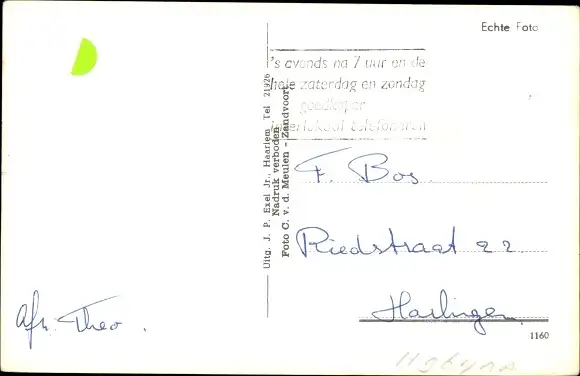 Echte Foto
's avonds na 7 uur en de
hele zaterdag en zondag
goedkoper
interlokaal telefoneren
Uitg. J. P. Exel Jr., Haarlem Tel 21926
Nadruk verboden
Foto C. v. d. Meulen - Zandvoort
F. Bos.
Riedstraat 22
Harlingen.
Afz. Theo.
1160